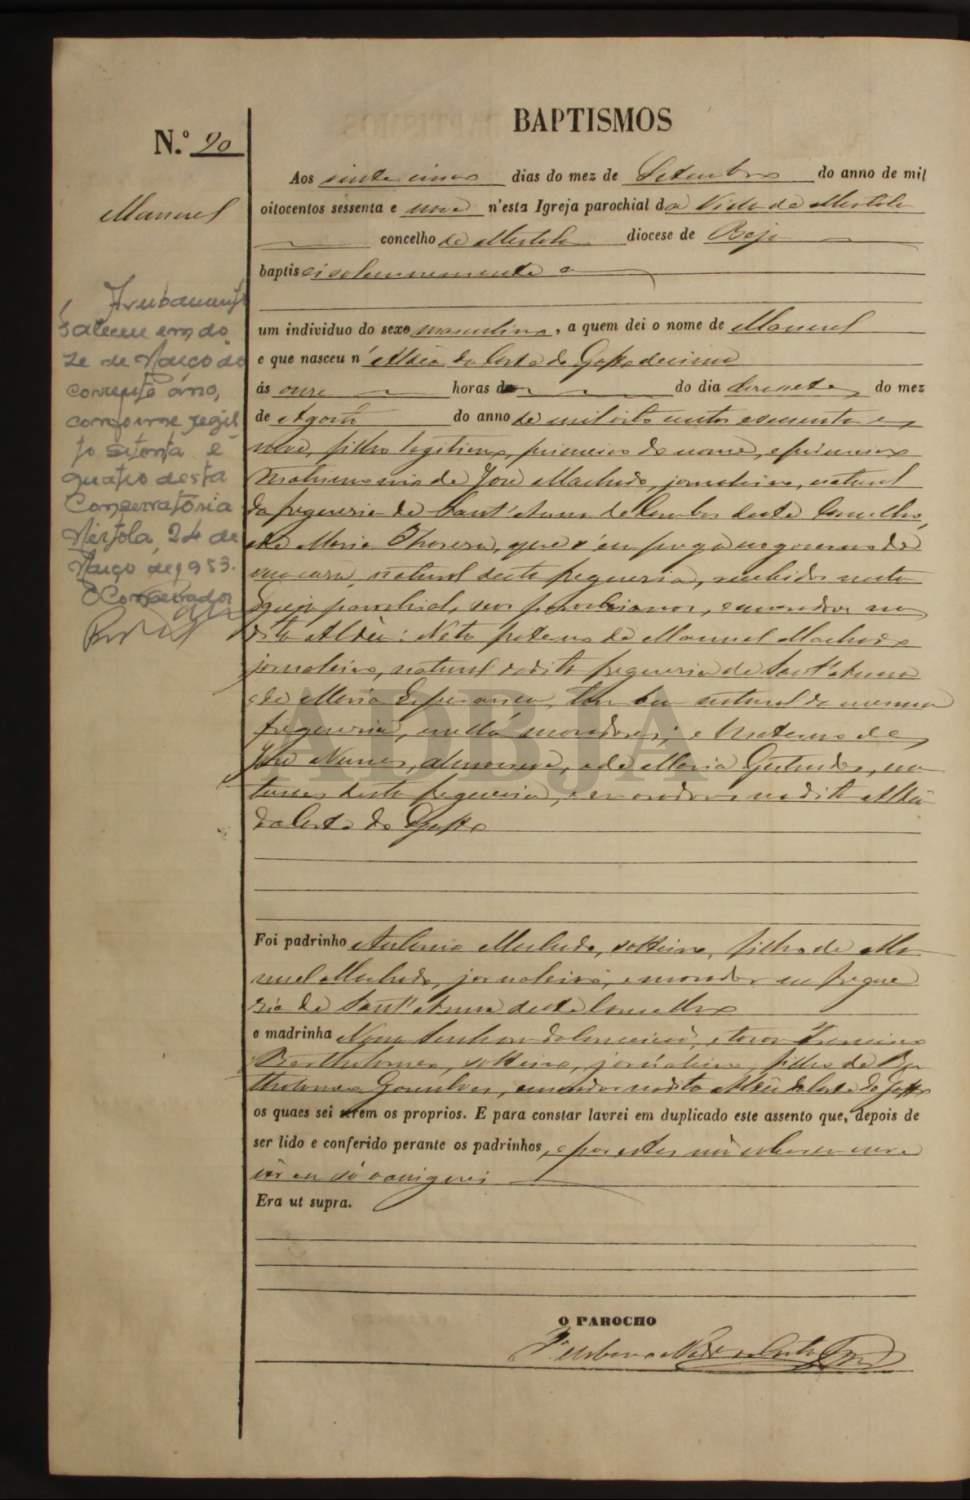 BAPTISMOS
N.º 90
Manuel
Aos vinte cinco dias do mez de Setembro do anno de mil
oitocentos sessenta e nove n'esta Igreja parochial da Villa de Mertola
concelho de Mertola diocese de Beja
baptisei solemnemente a
um individuo do sexo masculino, a quem dei o nome de Manuel
e que nasceu n' Aldêa da Corte do Gafo de cima
ás onze horas da do dia dezasete do mez
de Agosto do anno de mil oito centos e sessenta e
nove, filho legitimo, primeiro do nome, e primeiro
Matrimonio de José Machado, jornaleiro, natural
da freguesia de Sant'Anna de Cambas deste Concelho,
e de Maria Thereza, que s'emprega no governo de
sua casa, natural desta freguesia, recebidos nesta
Igreja parochial, seus parochianos, e moradores na
dita Aldêa: Neto paterno de Manuel Machado
jornaleiro, natural da dita freguesia de Sant'Anna
e de Maria Esperança, natural da mesma
freguesia, e nella moradores; e Materno de
José Nunes, e de Maria Gertrudes, na-
turaes desta freguesia, e moradores na dita Aldêa
da Corte do Gafo
Foi padrinho Antonio Machado, solteiro, filho de Ma-
nuel Machado, jornaleiro, e morador na fregue
sia de Sant'Anna deste Concelho
e madrinha Nossa Senhora da Conceição, e tocou Francisco
Bartholomeu, solteiro, jornaleiro, filho de Bar
tholomeu Gonsalves, e morador na dita Aldêa da Corte do Gafo
os quaes sei serem os proprios. E para constar lavrei em duplicado este assento que, depois de
ser lido e conferido perante os padrinhos, e por estes não saberem escre
ver eu só o assignei
Era ut supra.
O PAROCHO
faleceu em do
ze de Março do
corrente áno,
conforme regis
to setenta e
quatro desta
Conservatória
Mértola, 24 de
Março de 1953.
O Conservador
ADBJA